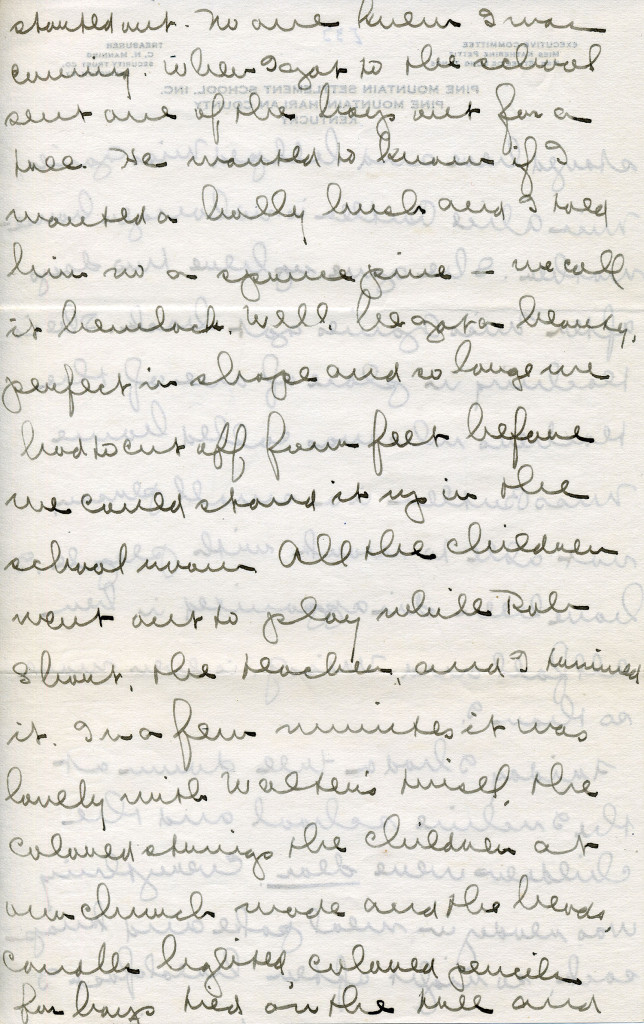 started out. No one knew I was
coming. When I got to the school
sent one of the boys out for a
tree. He wanted to know if I
wanted a holly bush and I told
him no a spruce pine – we call
it hemlock. Well, he got a beauty,
perfect in shape and so large we
had to cut off four feet before
we could stand it up in the
school room. All the children
went out to play while Rob
Short, the teacher, and I trimmed
it. In a few minutes it was
lovely with Walter's tinsel, the
colored strings the children at
our church made and the beads,
candles lighted colored pencils
for boys tied on the tree and